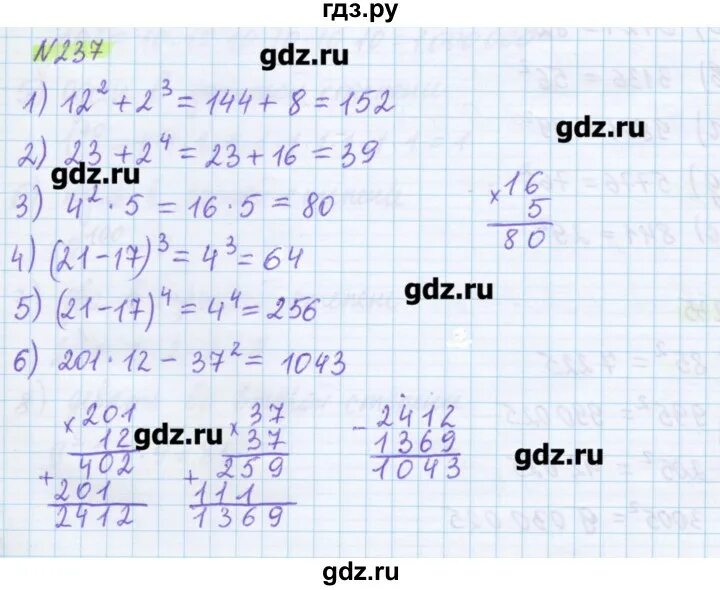 гдз.ру
№237
gdz.ru
1) 12² + 2³ = 144 + 8 = 152
gdz.ru
2) 23 + 2⁴ = 23 + 16 = 39
gdz.ru
3) 4² · 5 = 16 · 5 = 80
× 16
5
80
4) (21 - 17)³ = 4³ = 64
gdz.ru
5) (21 - 17)⁴ = 4⁴ = 256
6) 201 · 12 - 37² = 1043
× 201
12
+ 402
201
2412
gdz.ru
× 37
37
+ 259
111
1369
- 2412
1369
1043
gdz.ru
gdz.ru